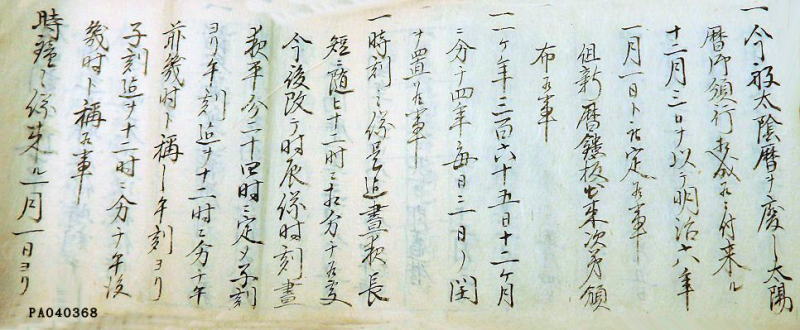 一今般太陰暦ヲ廃シ太陽
暦御頒行相成候ニ付来ル
十二月三日ヲ以テ明治六年
一月一日ト被定候事
但新暦鏤板出来次第頒
布候事
一一ケ年三百六十五日十二ケ月
ニ分チ四年毎ニ一日ノ閏
ヲ置候事
一時刻之儀是迄晝夜長
短ニ随ヒ十二時ニ相分チ候処
今後改テ時辰儀時刻晝
夜平分二十四時ニ定メ子刻
ヨリ午刻迄ヲ十二時ニ分チ午
前幾時ト称シ午刻ヨリ
子刻迄ヲ十二時ニ分チ午後
幾時ト称候事
時鐘之儀来ル一月一日ヨリ
PA040368